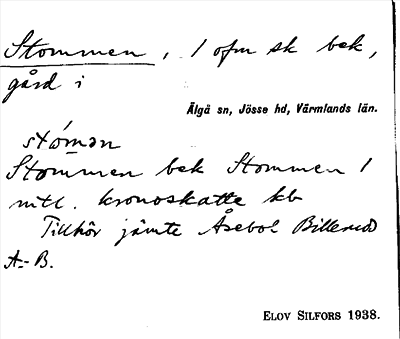 Stommen, 1 ofm sk bek,
gård i
Älgå sn, Jösse hd, Värmlands län.
stómən
Stommen bek Stommen 1
mtl. kronoskatte kb
Tillhör jämte Åsebol Billerud
A.-B.
ELOV SILFORS 1938.